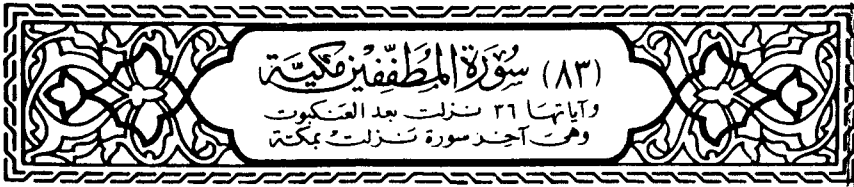 (٨٣) سُورَةُ المُطَفِّفِينَ مَكِيَّة
وآياتها ٣٦ نزلت بعد العنكبوت
وهى آخر سورة نزلت بمكة